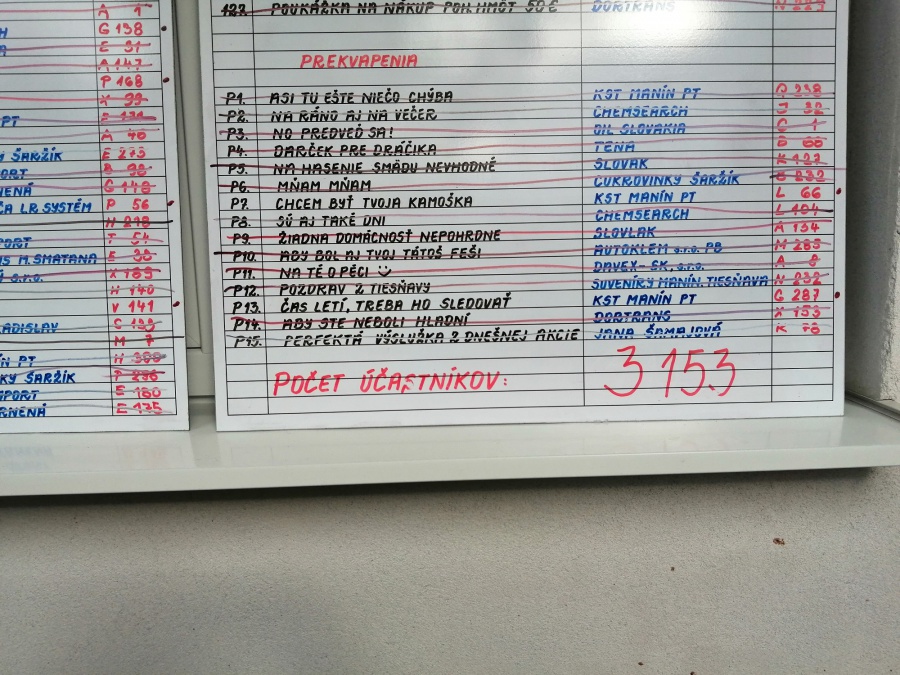 A 1
G 138
E 31
A 147
P 168
X 99
PT
A 40
ŠARŽÍK E 275
ORT B 90
G 148
ČA LR SYSTÉM P 56
H 218
PORT T 54
IS M.SMATANA E 30
s.r.o. X 189
H 140
V 141
LADISLAV C 193
M 7
ÍN PT H 300
KY ŠARŽÍK P 296
SPORT E 160
E 135
127. POUKÁŽKA NA NÁKUP POH. HMÔT 50€ DORTRANS N 223
PREKVAPENIA
P1. ASI TU EŠTE NIEČO CHÝBA KST MANÍN PT
P2. NA RÁNO AJ NA VEČER CHEMSEARCH J 32
P3. NO PREDVEĎ SA! OIL SLOVAKIA C 1
P4. DARČEK PRE DRÁČIKA TENA
P5. NA HASENIE SMÄDU NEVHODNÉ SLOVAK K 127
P6. MŇAM MŇAM CUKROVINKY ŠARŽÍK 232
P7. CHCEM BYŤ TVOJA KAMOŠKA KST MANÍN PT L 66
P8. SÚ AJ TAKÉ DNI CHEMSEARCH L 104
P9. ŽIADNA DOMÁCNOSŤ NEPOHRDNE SLOVLAK A 134
P10. ABY BOL AJ TVOJ TÁTOŠ FEŠI AUTOKLEM s.r.o. PB M 285
P11. NA TÉ O PĚCI DAVEX-SK, s.r.o. A 8
P12. POZDRAV Z TIESŇAVY SUVENÍRY MANÍN. TIESŇAVA N 232
P13. ČAS LETÍ, TREBA HO SLEDOVAŤ KST MANÍN PT G 287
P14. ABY STE NEBOLI HLADNÍ DORTRANS X 153
P15. PERFEKTÁ VÝSLUŽKA Z DNEŠNEJ AKCIE JANA
POČET ÚČASTNÍKOV: 3 153